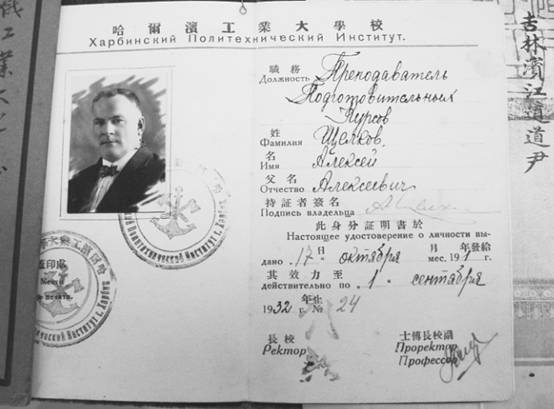 哈爾濱工業大學校
Харбинский Политехнический Институт.
職務
Должность Преподаватель
Подготовительных
Курсов
姓
Фамилия Щелков
名
Имя Алексей
父名
Отчество Алексеевич
持証者簽名
Подпись владельца
此身分証明書於
Настоящее удостоверение о личности вы-
日 月 年發給
дано „17" октября мес. 19 1 г.
其效力至
действительно по „1" сентября
年止
1932 г. № 24
長校
Ректор
士博長校副
Проректор
Профессор
吉林濱江道道尹
工業大
Политехнический Институт г. Харбин
Место
печати.